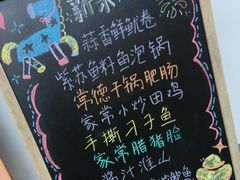 新菜
蒜香鲜鱿卷
紫苏鱼籽鱼泡锅
常德干锅肥肠
家常小炒田鸡
手撕刁子鱼
家常腊猪脸
酱汁淮山